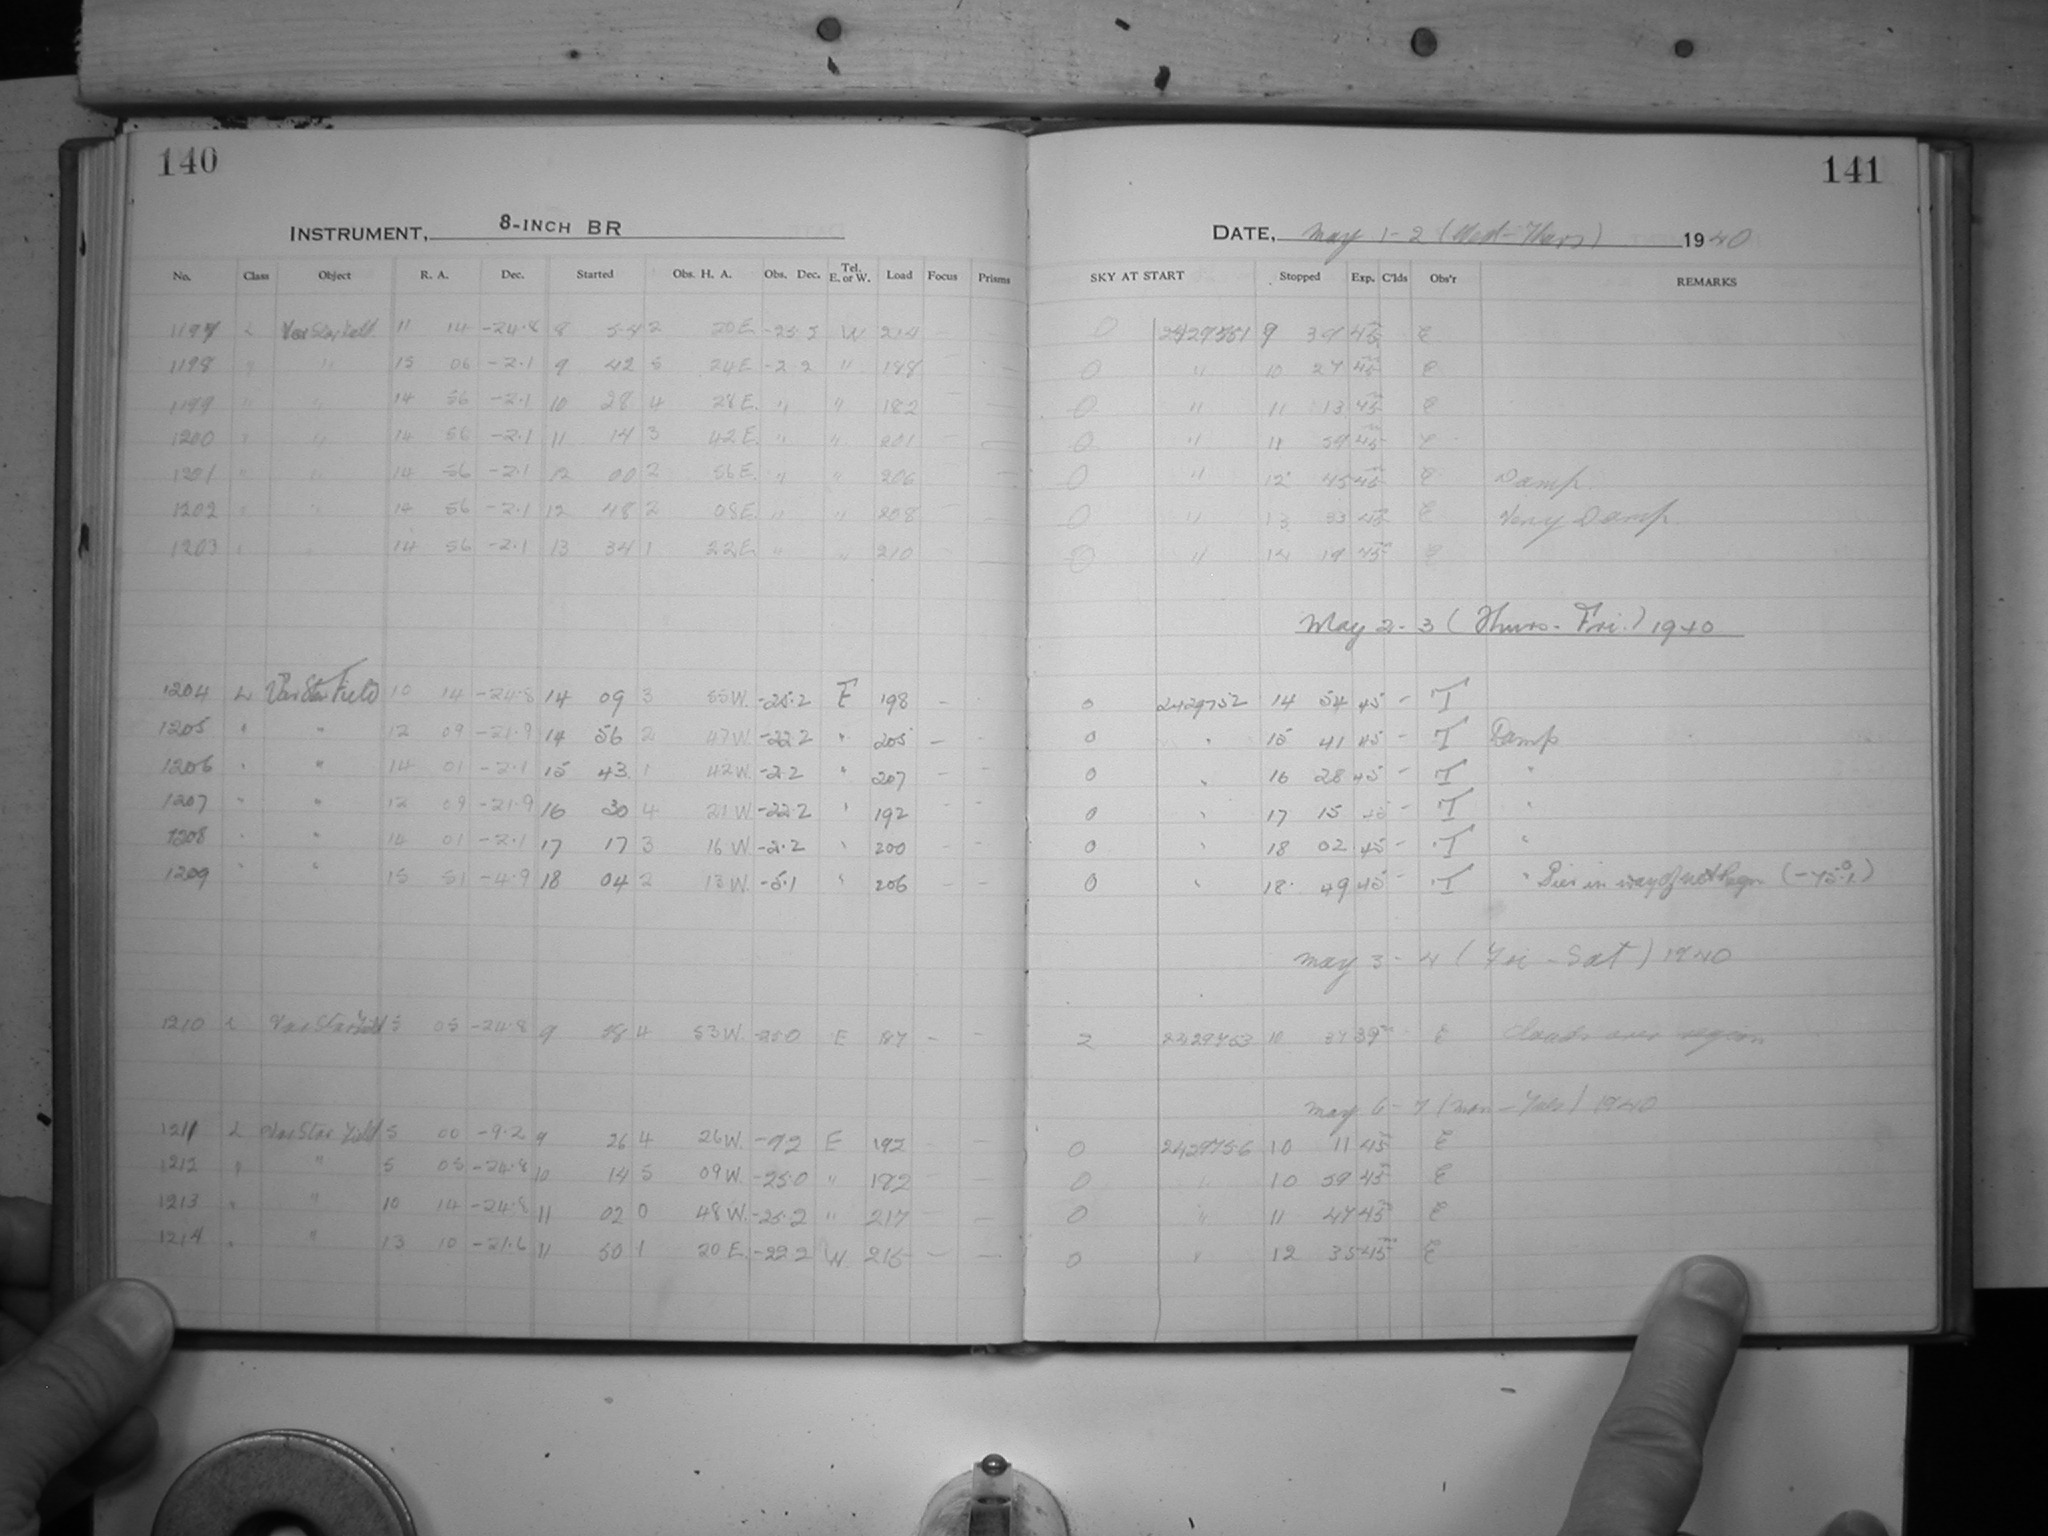 140
141
INSTRUMENT, 8-INCH BR
DATE, May 1-2 (Wed-Thurs) 1940
No. Class Object R. A. Dec. Started Obs. H. A. Obs. Dec. Tel. E. or W. Load Focus Prisms SKY AT START Stopped Exp. C'lds Obs'r REMARKS
1197 L Var Star Field 11 14 -24.8 8 54 2 20 E. -25.2 W 214 0 9 39 45 E
1198 " " 15 06 -2.1 9 42 5 24 E -2 2 " 188 0 " 10 27 45 E
1199 " " 14 56 -2.1 10 28 4 28 E. " " 182 0 " 11 13 45 E
1200 " " 14 56 -2.1 11 14 3 42 E. " " 201 0 " 11 59 45 E
1201 " " 14 56 -2.1 12 00 2 56 E. " " 206 0 " 12 45 45 E Damp.
1202 " " 14 56 -2.1 12 48 2 08 E. " " 208 0 " 13 33 45 E Very Damp
1203 " " 14 56 -2.1 13 34 1 22 E. " " 210 0 " 14 19 45 E
May 2-3 (Thurs-Fri.) 1940
1204 L Var Star Field 10 14 -24.8 14 09 3 55 W. -25.2 E 198 - - 0 2429752 14 54 45 - T
1205 " " 12 09 -21.9 14 56 2 47 W. -22.2 " 205 - - 0 " 15 41 45 - T Damp
1206 " " 14 01 -2.1 15 43 1 42 W. -2.2 " 207 - - 0 " 16 28 45 - T "
1207 " " 12 09 -21.9 16 30 4 21 W. -22.2 " 192 - - 0 " 17 15 45 - T "
1208 " " 14 01 -2.1 17 17 3 16 W -2.2 " 200 - - 0 " 18 02 45 - T "
1209 " " 15 51 -4.9 18 04 2 13 W. -5.1 " 206 - - 0 " 18 49 45 - T " Pier in way of
May 3-4 (Fri-Sat) 1940
1210 L Var Star Field 5 05 -24.8 9 58 4 53 W. -25.0 E 187 - - 2 2429753 10 37 39 E Clouds over region
May 6-7 (Mon-Tues) 1940
1211 L Var Star Field 5 00 -9.2 9 26 4 26 W. -9.2 E 192 - - 0 2429756 10 11 45 E
1212 " " 5 05 -24.8 10 14 5 09 W. -25.0 " 182 - - 0 " 10 59 45 E
1213 " " 10 14 -24.8 11 02 0 48 W. -25.2 " 217 - - 0 " 11 47 45 E
1214 " " 13 10 -21.6 11 50 1 20 E. -22.2 W. 215 - - 0 " 12 35 45 E